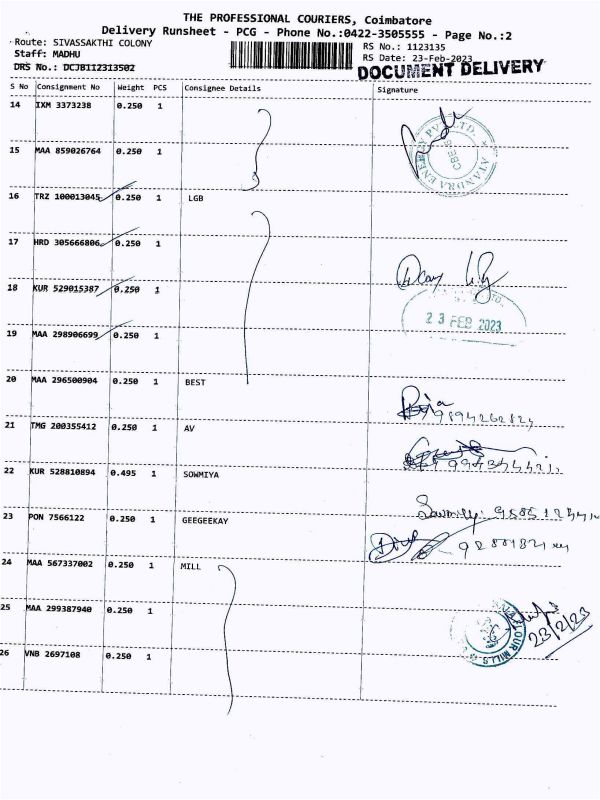 THE PROFESSIONAL COURIERS, Coimbatore
Delivery Runsheet - PCG - Phone No.:0422-3505555 - Page No.:2
Route: SIVASSAKTHI COLONY
Staff: MADHU
DRS No.: DCJB112313502
RS No.: 1123135
RS Date: 23-Feb-2023
DOCUMENT DELIVERY
S No Consignment No Weight PCS Consignee Details Signature
14 IXM 3373238 0.250 1
15 MAA 859026764 0.250 1
16 TRZ 100013045 0.250 1 LGB
17 HRD 305666806 0.250 1
18 KUR 529015387 0.250 1
23 FEB 2023
19 MAA 298906699 0.250 1
20 MAA 296500904 0.250 1 BEST
21 TMG 200355412 0.250 1 AV
22 KUR 528810894 0.495 1 SOWMIYA
23 PON 7566122 0.250 1 GEEGEEKAY
24 MAA 567337002 0.250 1 MILL
25 MAA 299387940 0.250 1
FLOUR MILLS
23/2/23
26 VNB 2697108 0.250 1